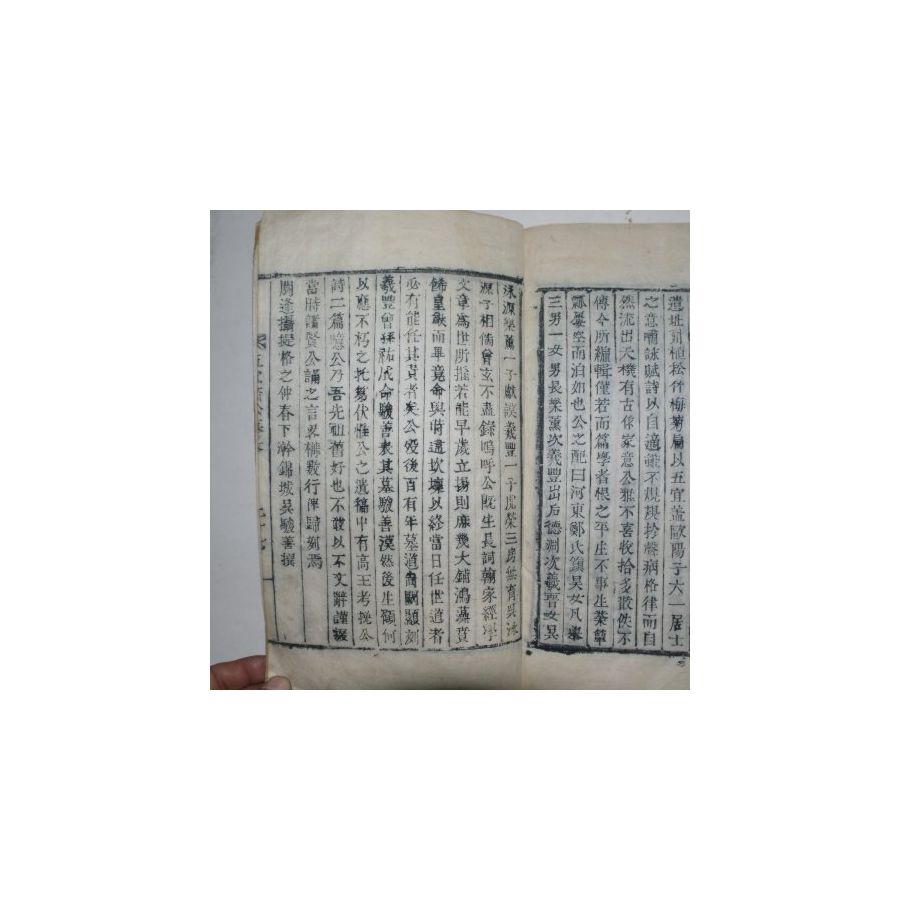 遺址種植松竹梅菊扁以五宜盖歐陽子六一居士
之意嘯詠賦詩以自適雖不規規於聲病格律而自
然流出天機有古作家意公雅不喜收拾多散佚不
傳今所編輯僅若而篇學者根之平生不事生業簞
瓢屢空而泊如也公之配曰河東鄭氏鎮昊女凡擧
三男一女男長樂薰次義豐出后德淵次義 女吳
泳源樂薰一子獻謨義豐一子 榮三房無育吳泳
源子相儒曾玄不盡錄嗚呼公旣生長詞翰家經學
文章爲世所推若能早歲立揚則庶幾大鋪鴻藻賁
餙皇猷而畢竟命與時違坎壈以終當日任世道者
必有能任其責者矣公歿後百有年墓道尙闕顯刻
義豐曾孫祐 命駿善表其墓駿善漠然後生顧何
以應不朽之托爲伏惟公之遺稿中有高王考 公
詩二篇 公乃吾先祖舊好也不敢以不文辭謹輟
當時諸賢公誦之言畧 數行俾歸刻焉
閼逢攝提格之仲春下澣錦城吳駿善撰